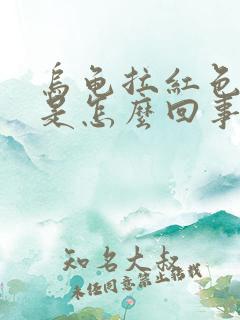 乌龟拉红色
是怎麼回事
知名大叔
未经同意禁止转载